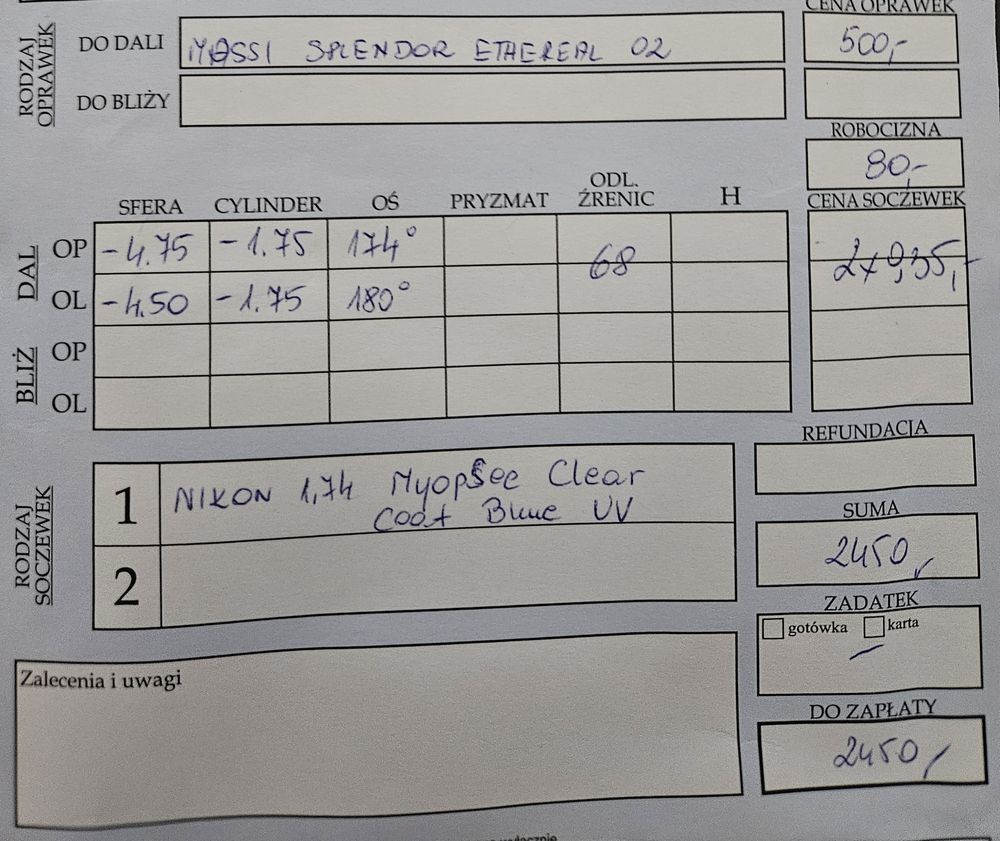 CENA OPRAWEK
RODZAJ OPRAWEK
DO DALI MASSI SPLENDOR ETHEREAL 02 500,-
DO BLIŻY
ROBOCIZNA
80,-
SFERA CYLINDER OŚ PRYZMAT ODL. ŹRENIC H CENA SOCZEWEK
DAL
OP -4.75 -1.75 174° 68 2x935,-
OL -4.50 -1.75 180°
BLIŻ
OP
OL
REFUNDACJA
RODZAJ SOCZEWEK
1 NIKON 1,74 Myopsee Clear
Coat Blue UV
2
SUMA
2450,-
ZADATEK
gotówka karta
-
Zalecenia i uwagi
DO ZAPŁATY
2450,-